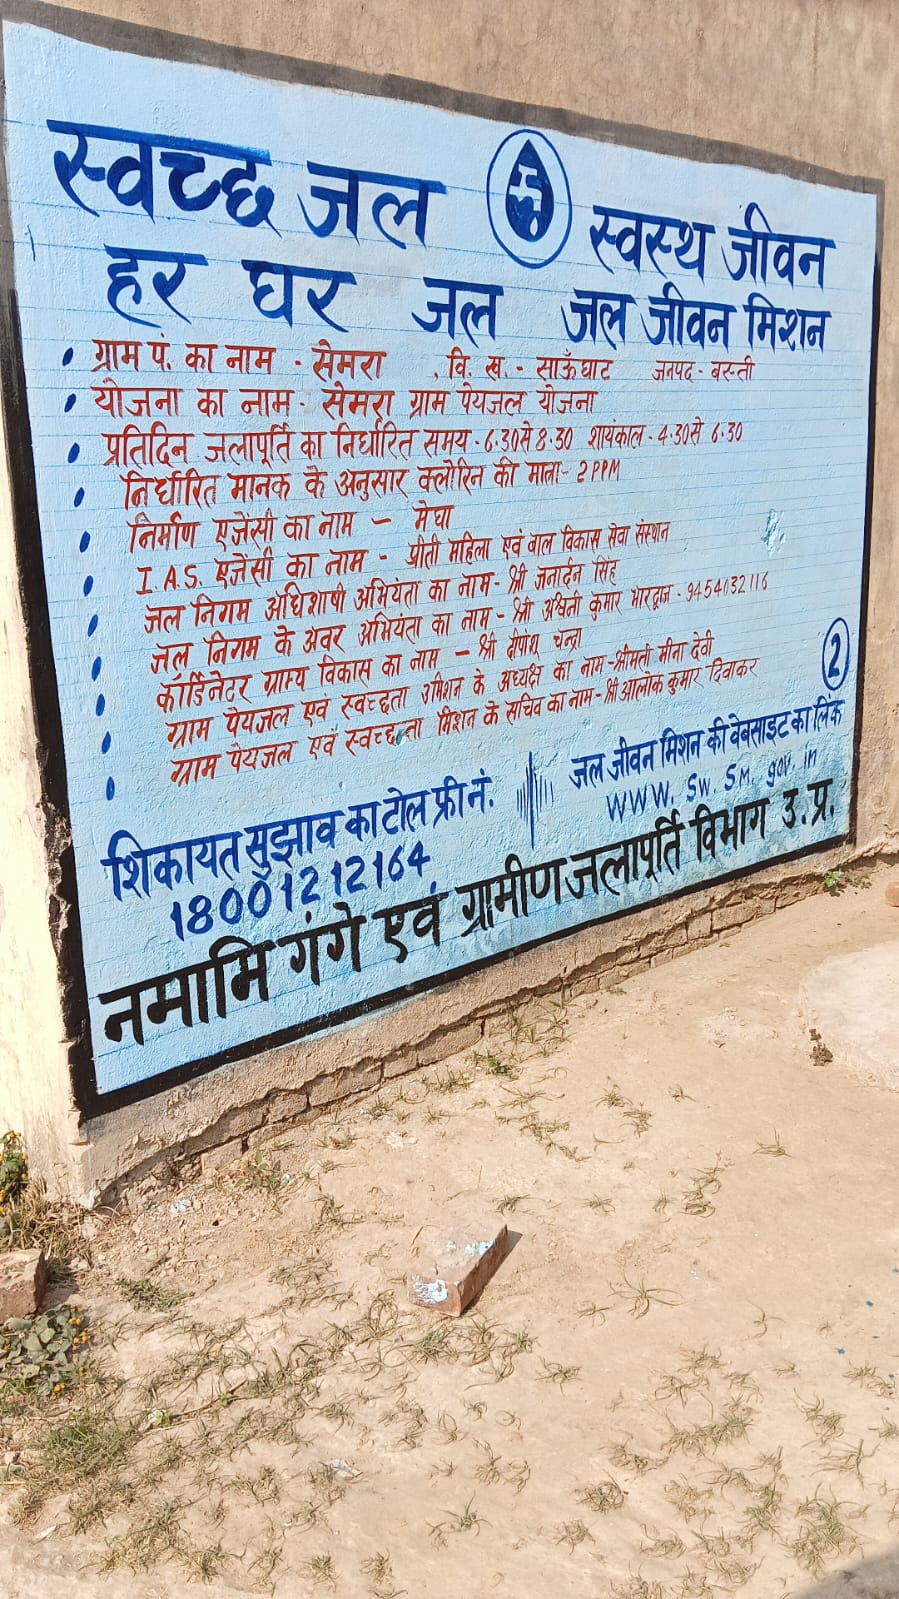 स्वच्छ जल स्वस्थ जीवन
हर घर जल जल जीवन मिशन
• ग्राम पं. का नाम - सेमरा , वि. ख. - साऊँघाट जनपद - बस्ती
• योजना का नाम - सेमरा ग्राम पेयजल योजना
• प्रतिदिन जलापूर्ति का निर्धारित समय - 6.30 से 8.30 शायंकाल - 4.30 से 6.30
• निर्धारित मानक के अनुसार क्लोरिन की मात्रा - 2 PPM
• निर्माण एजेंसी का नाम – मेघा
• I.A.S. एजेंसी का नाम - प्रीती महिला एवं बाल विकास सेवा संस्थान
• जल निगम अधिशाषी अभियंता का नाम - श्री जनार्दन सिंह
• जल निगम के अवर अभियंता का नाम - श्री अश्विनी कुमार भारद्वाज - 9454032116
• कॉर्डिनेटर ग्राम्य विकास का नाम – श्री दीपांशु चन्द्रा
• ग्राम पेयजल एवं स्वच्छता मिशन के अध्यक्ष का नाम - श्रीमती मीना देवी
• ग्राम पेयजल एवं स्वच्छता मिशन के सचिव का नाम - श्री आलोक कुमार दिवाकर
2
शिकायत सुझाव का टोल फ्री नं.
18001212164
जल जीवन मिशन की वेबसाइट का लिंक
www. sw. sm. gov. in
नमामि गंगे एवं ग्रामीण जलापूर्ति विभाग उ. प्र.